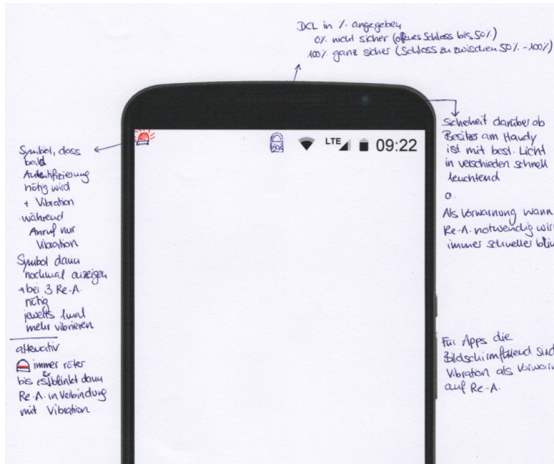 DCL in % angegeben
0% nicht sicher (offenes Schloss bis 50%)
100% ganz sicher (Schloss zu zwischen 50% - 100%)
LTE 09:22
Symbol, dass
bald
Autentifizierung
nötig wird
+ Vibration
während
Anruf nur
Vibration
Symbol dann
nochmal anzeigen
+ bei 3 Re-A.
nötig
jeweils 1 mal
mehr vibrieren
alternativ
immer röter
bis es blinkt dann
Re-A. in Verbindung
mit Vibration
Sicherheit darüber ob
Besitzer am Handy
ist mit best. Licht
in verschieden schnell
leuchtend
o.
Als Vorwarnung wann
Re-A. notwendig
immer schneller
Für Apps die
Bildschirmfüllend sind
Vibration als
auf Re-A.